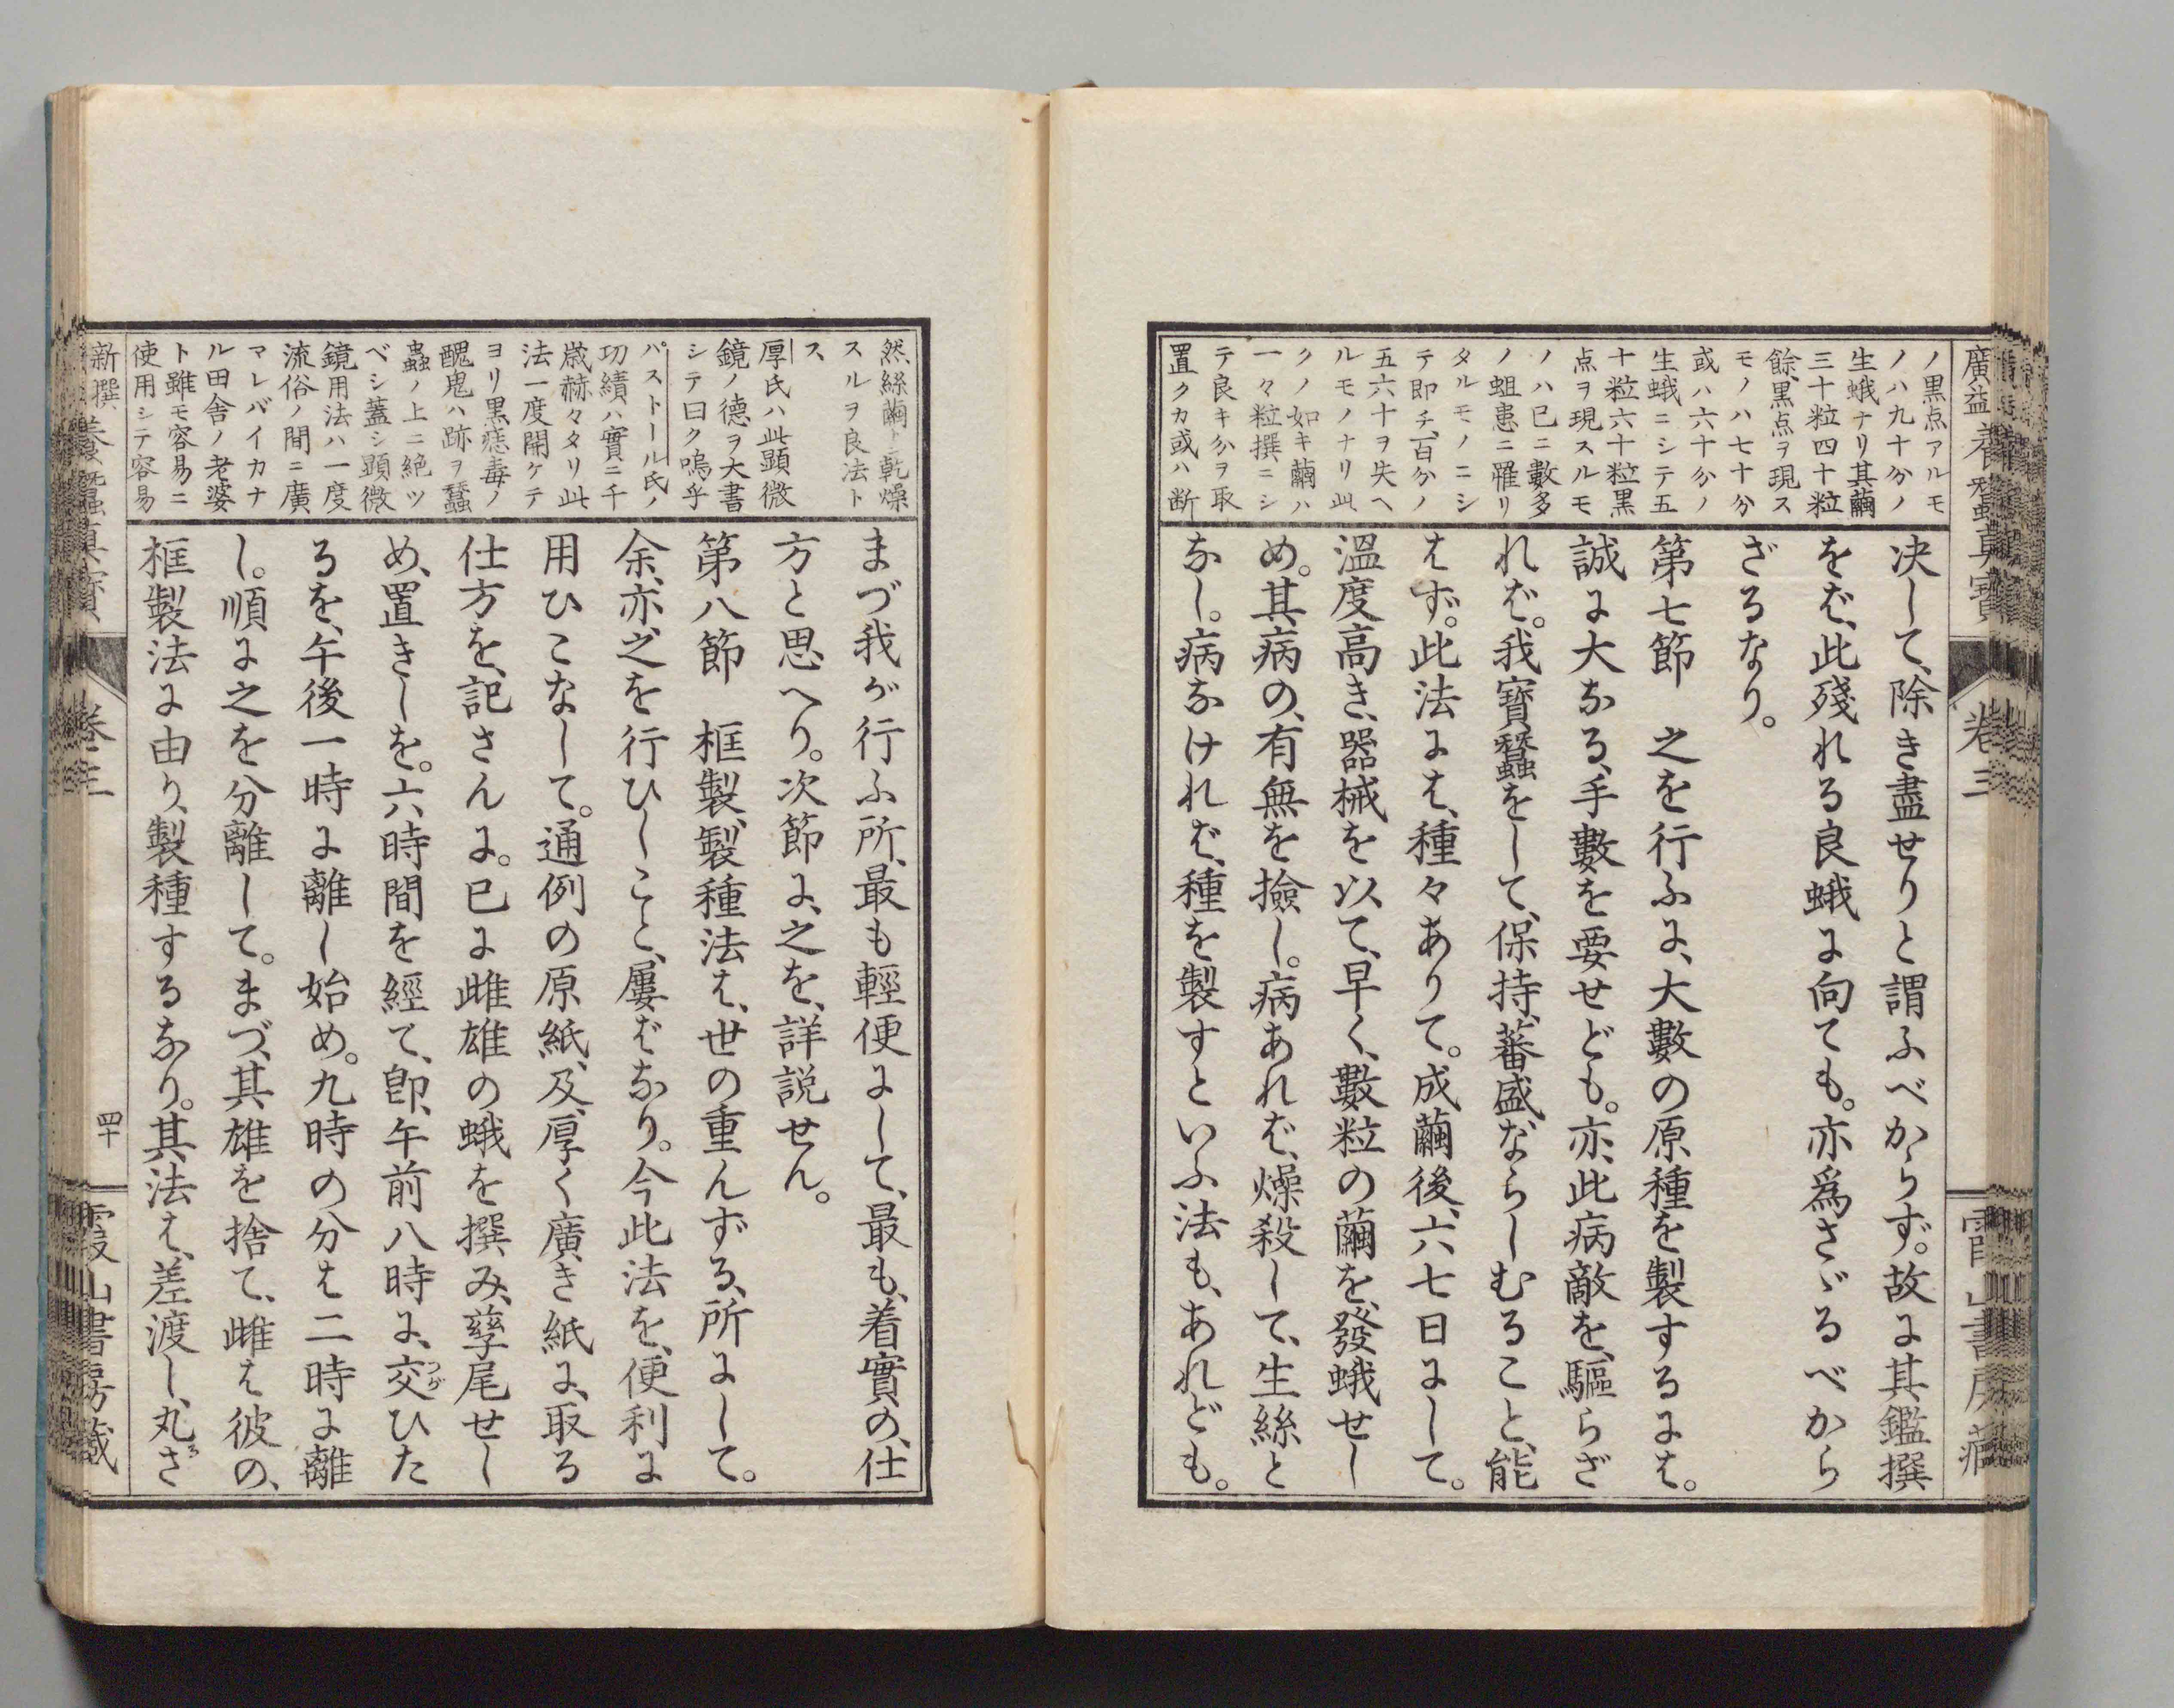 廣益養蠶真寶
卷三
ノ黒点アルモ
ノハ九十分ノ
生蛾ナリ其繭
三十粒四十粒
餘、黒点ヲ現ス
モノハ七十分
或ハ六十分ノ
生蛾ニシテ五
十粒六十粒黒
点ヲ現スルモ
ノハ已ニ數多
ノ蛆患ニ罹リ
タルモノニシ
テ即チ、百分ノ
五六十ヲ失ヘ
ルモノナリ此
クノ如キ繭ハ
一々粒撰ニシ
テ良キ分ヲ取
置クカ或ハ断
决して、除き盡せりと謂ふべからず。故に其鑑撰
をば、此殘れる良蛾に向ても。亦爲さゞるべから
ざるなり。
第七節　之を行ふに、大數の原種を製するには。
誠に大なる、手數を要せども。亦、此病敵を、驅らざ
れば。我寶蠶をして、保持、蕃盛ならしむること、能
はず。此法には、種々ありて。成繭後、六七日にして。
溫度高き、器械を以て、早く、數粒の繭を、發蛾せし
め。其病の、有無を撿し。病あれば、燥殺して、生絲と
なし。病なければ、種を製すといふ法も、あれども。
然絲繭トシ乾燥
スルヲ良法ト
ス
厚氏ハ此顕微
鏡ノ德ヲ大書
シテ曰ク嗚乎
パストール氏ノ
功績ハ實ニ千
歳赫々タリ此
法一度開ケテ
ヨリ黒痣毒ノ
醜鬼ハ跡ヲ蠶
蟲ノ上ニ絶ツ
ベシ蓋シ顕微
鏡用法ハ一度
流俗ノ間ニ廣
マレバイカナ
ル田舎ノ老婆
ト雖モ容易ニ
使用シテ容易
まづ我が行ふ所、最も輕便にして、最も、着實の、仕
方と思へり。次節に、之を、詳説せん。
第八節　框製、製種法は、世の重んずる、所にして。
余、亦、之を行ひしこと、屢ばなり。今此法を、便利に
用ひこなして。通例の原紙、及、厚く廣き紙に、取る
仕方を、記さんに。已に雌雄の蛾を撰み、孳尾せし
め、置きしを。六時間を經て、卽、午前八時に、交つがひた
るを、午後一時に離し始め。九時の分は二時に離
し。順に之を分離して。まづ、其雄を捨て、雌は彼の、
框製法に由り、製種するなり。其法は、差渡し、丸さ
新撰養蠶真寶
卷三
四十
霞山書房藏